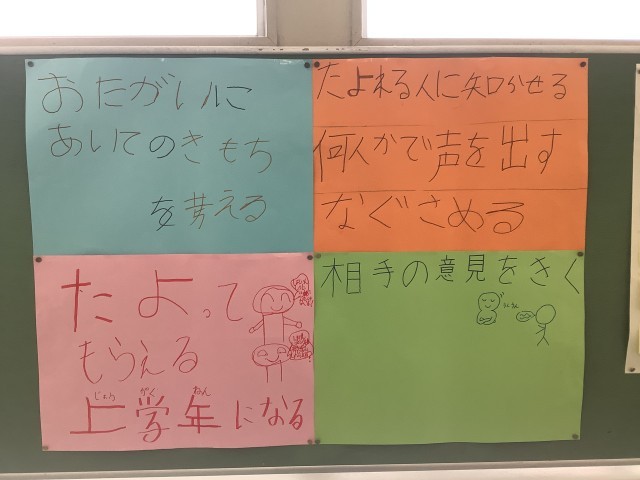 おたがいに
あいてのきもち
を考える
たよれる人に知らせる
何人かで声を出す
なぐさめる
たよって
もらえる
じょう がく ねん
上学年になる
相手の意見をきく